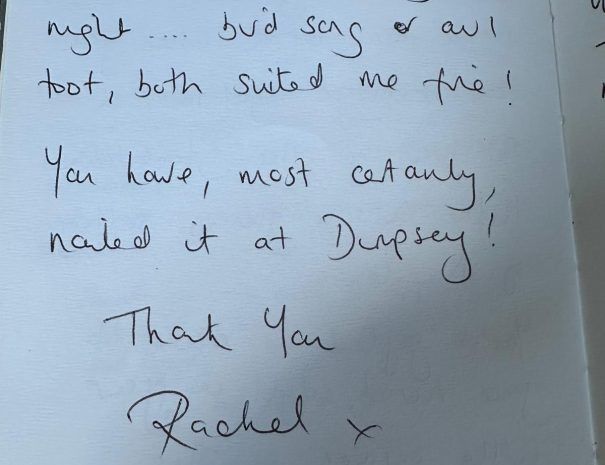 night .... bird song or owl
toot, both suited me fine!
You have, most certainly,
nailed it at Dimpsey!
Thank You
Rachel x